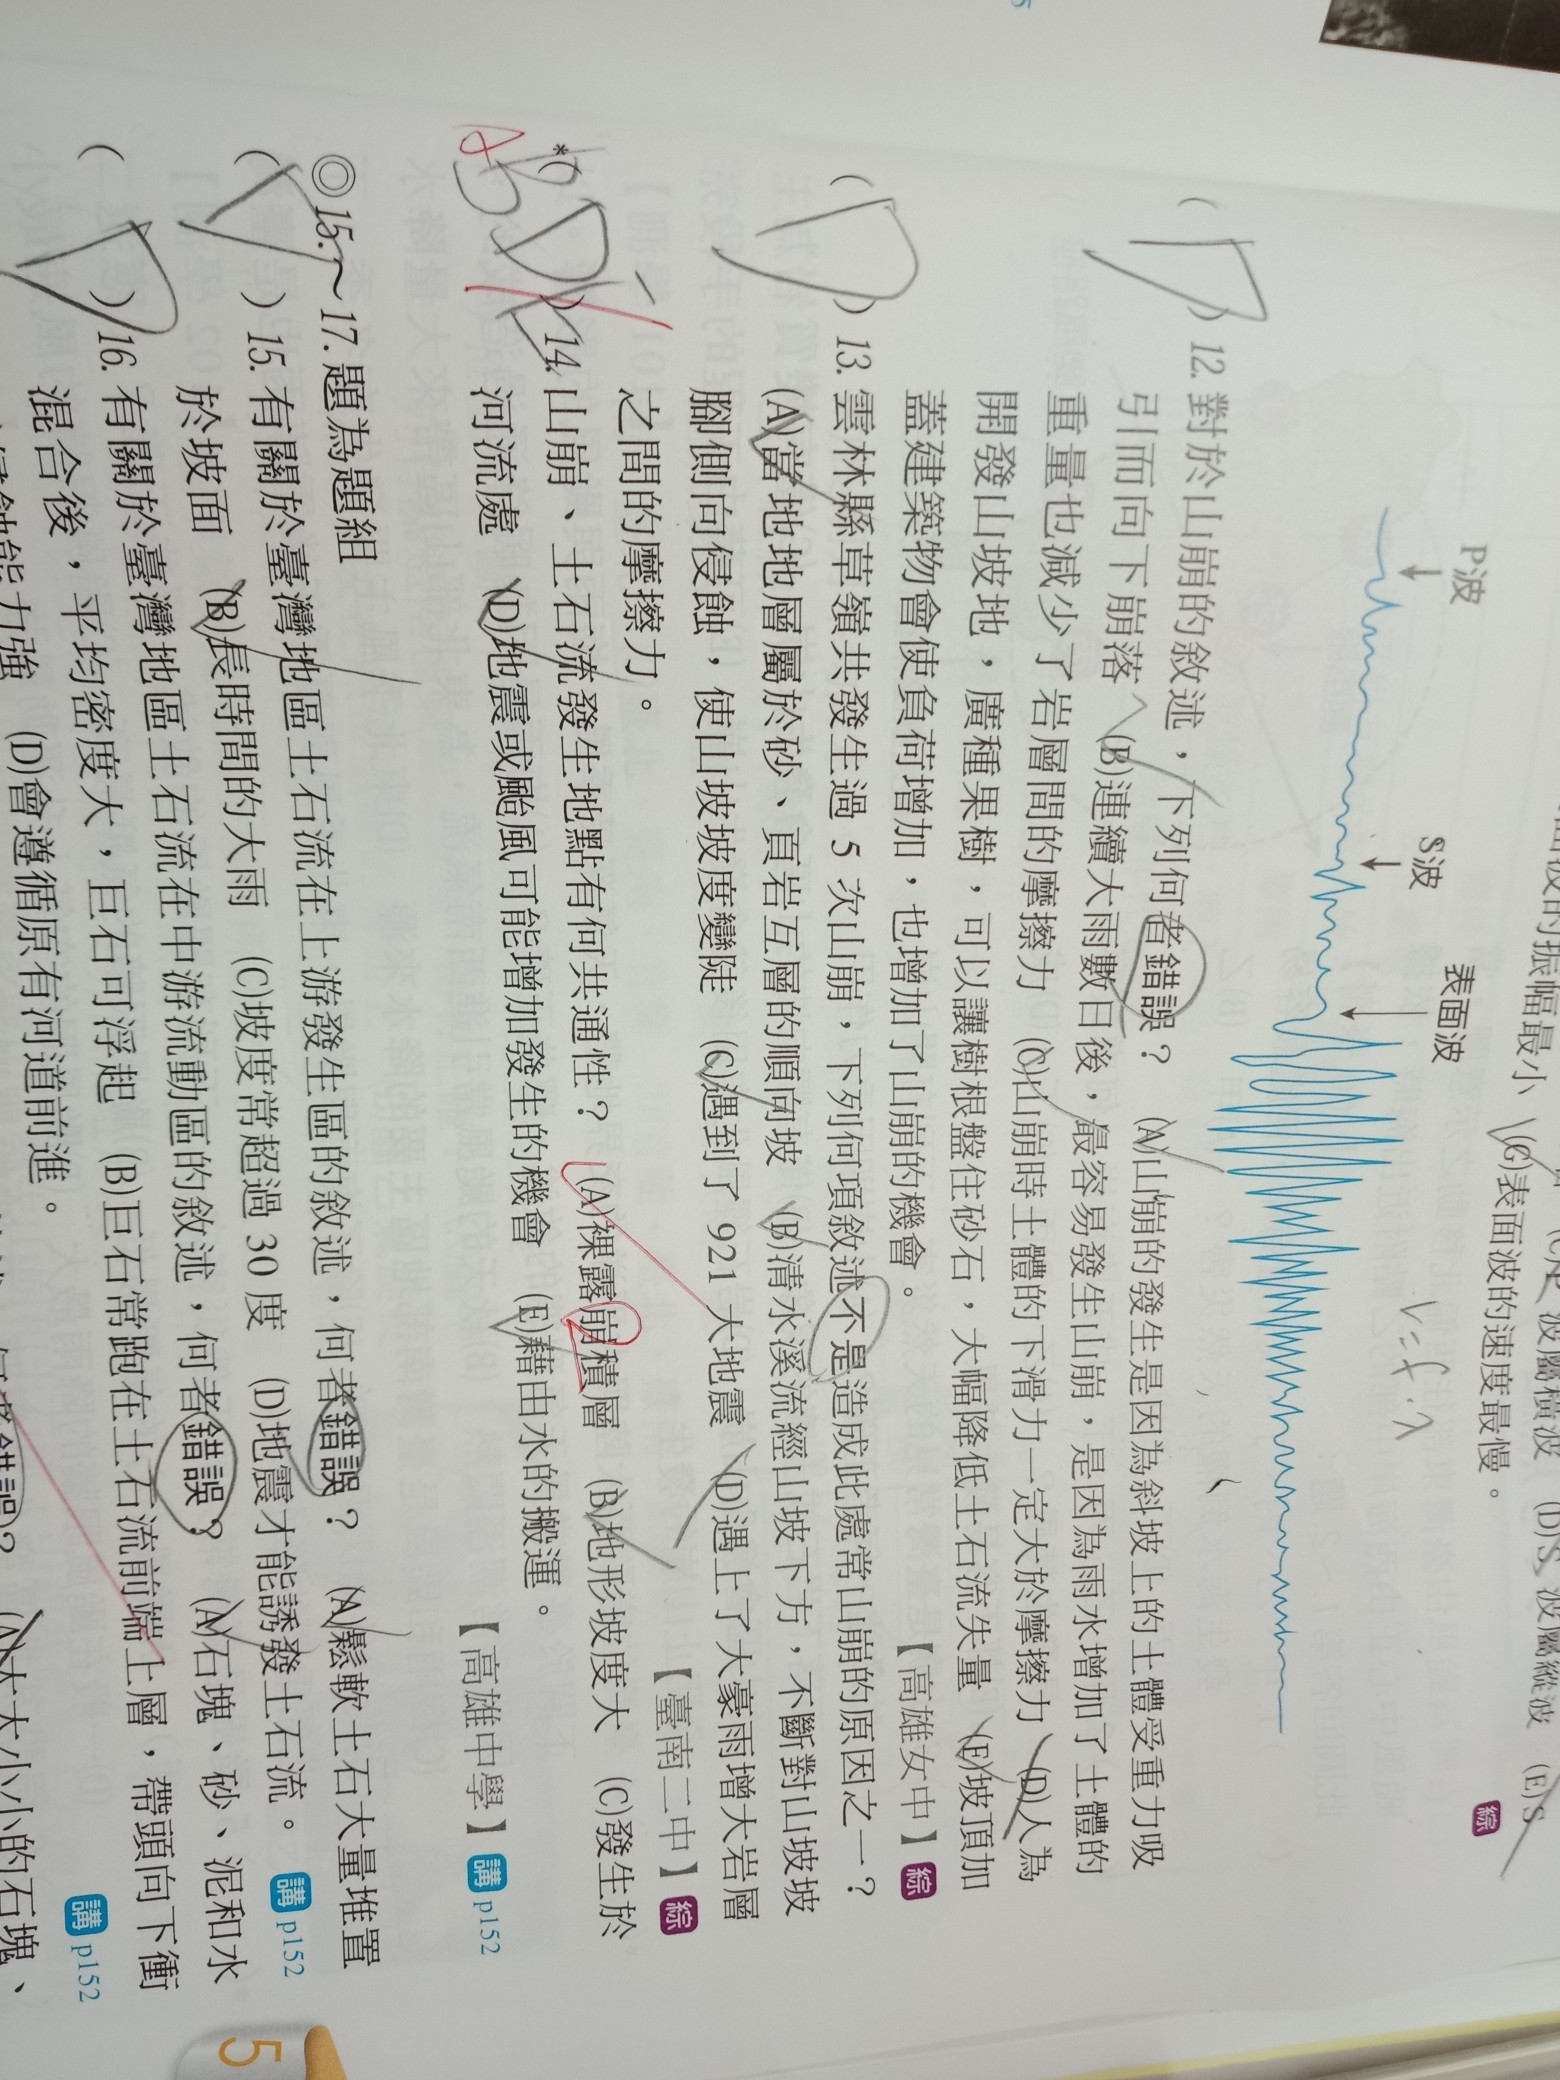 出波的振幅最小 (C)表面波的速度最慢。
波屬橫波 (D)S 波屬縱波 (E)S
綜
V=f·λ
P波
S波
表面波
( D ) 12. 對於山崩的敘述,下列何者錯誤? (A)山崩的發生是因為斜坡上的土體受重力吸
引而向下崩落 (B)連續大雨數日後,最容易發生山崩,是因為雨水增加了土體的
重量也減少了岩層間的摩擦力 (C)山崩時土體的下滑力一定大於摩擦力 (D)人為
開發山坡地,廣種果樹,可以讓樹根盤住砂石,大幅降低土石流失量 (E)坡頂加
蓋建築物會使負荷增加,也增加了山崩的機會。 【高雄女中】 綜
( D ) 13. 雲林縣草嶺共發生過 5 次山崩,下列何項敘述不是造成此處常山崩的原因之一?
(A)當地地層屬於砂、頁岩互層的順向坡 (B)清水溪流經山坡下方,不斷對山坡坡
腳側向侵蝕,使山坡坡度變陡 (C)遇到了 921 大地震 (D)遇上了大豪雨增大岩層
之間的摩擦力。 【臺南二中】 綜
*( D ) 14. 山崩、土石流發生地點有何共通性? (A)裸露崩積層 (B)地形坡度大 (C)發生於
A B
河流處 (D)地震或颱風可能增加發生的機會 (E)藉由水的搬運。
【高雄中學】 講 p152
◎15.~17. 題為題組
( D ) 15. 有關於臺灣地區土石流在上游發生區的敘述,何者錯誤? (A)鬆軟土石大量堆置
於坡面 (B)長時間的大雨 (C)坡度常超過 30 度 (D)地震才能誘發土石流。 講 p152
( D ) 16. 有關於臺灣地區土石流在中游流動區的敘述,何者錯誤? (A)石塊、砂、泥和水
混合後,平均密度大,巨石可浮起 (B)巨石常跑在土石流前端上層,帶頭向下衝
侵蝕能力強 (D)會遵循原有河道前進。 講 p152
錯誤? (A)大大小小的石塊、
5